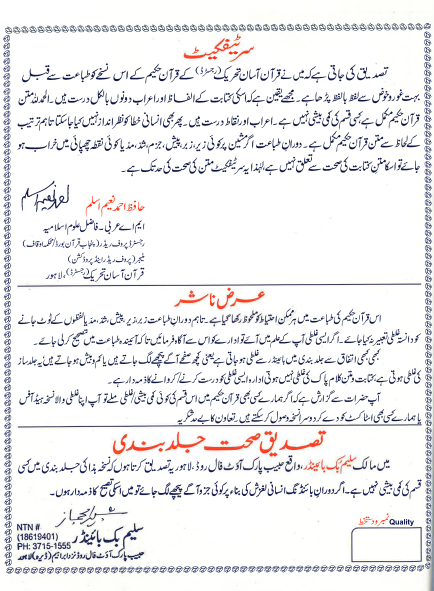 سرٹیفکیٹ
تصدیق کی جاتی ہے کہ میں نے قرآن آسان تحریک (رجسٹرڈ) کے قرآن حکیم کے اس نسخے کو طباعت سے قبل
بہت غور و خوض سے لفظ بالفظ پڑھا ہے۔ مجھے یقین ہے کہ اسکی کتابت کے الفاظ اور اعراب دونوں بالکل درست ہیں۔ الحمدللہ متن
قرآن حکیم مکمل ہے اسمیں کسی قسم کی کمی بیشی نہیں ہے۔ اعراب اور نقاط درست ہیں۔ پھر بھی انسانی خطا کو نظر انداز نہیں کیا جاسکتا تاہم ترتیب
کے لحاظ سے متن قرآن حکیم مکمل ہے۔ دوران طباعت اگر مشین پر کوئی زیر، زبر، پیش، جزم، شد، مد یا کوئی نقطہ چھپائی میں خراب ہو
جائے تو اسکا متن کتابت کی صحت سے تعلق نہیں ہے لہٰذا یہ سرٹیفکیٹ متن کی صحت کی حد تک ہے۔
حافظ احمد نعیم اسلم
ایم اے عربی۔ فاضل علوم اسلامیہ
رجسٹرڈ پروف ریڈر (پنجاب قرآن بورڈ/محکمہ اوقاف)
منیجر (پروف ریڈنگ اینڈ پروڈکشن)
قرآن آسان تحریک (رجسٹرڈ)، لاہور
عرض ناشر
اس قرآن حکیم کی طباعت میں ہر ممکن احتیاط کو ملحوظ رکھا گیا ہے۔ تاہم دوران طباعت زیر، زبر، پیش، شد، مد یا لفظوں کے ٹوٹ جانے
کو دانستہ غلطی تعبیر نہ کیا جائے۔ اگر ایسی غلطی آپ کے علم میں آئے تو ادارے کو اس سے آگاہ فرمائیں تاکہ آئندہ طباعت میں تصحیح کرلی جائے۔
کبھی کبھی اتفاق سے جلد بندی میں بائینڈر سے غلطی ہو جاتی ہے یعنی کچھ صفحے آگے پیچھے لگ جاتے ہیں یا کم و بیش ہو جاتے ہیں یہ جلد ساز
کی غلطی ہوتی ہے کتابت و متن کلام پاک کی غلطی نہیں ہوتی ادارہ ایسی غلطی کو درست کرنے/کروانے کا ذمہ دار ہے۔
آپ حضرات سے گزارش ہے کہ اگر ہمارے کسی بھی قرآن حکیم میں اس قسم کی کوئی کمی بیشی/غلطی ملے تو آپ اپنا غلطی والا نسخہ ہیڈ آفس
یا ہمارے کسی بھی اسٹاکسٹ کو دے کر دوسرا نسخہ وصول کرسکتے ہیں۔ تعاون کا بے حد شکریہ
تصدیق صحت جلد بندی
میں مالک سلیم بک بائینڈر، واقع حبیب پارک آؤٹ فال روڈ، لاہور یہ تصدیق کرتا ہوں کہ نسخہ ہذا کی جلد بندی میں کسی
قسم کی کمی بیشی نہیں ہے۔ اگر دوران بائنڈنگ انسانی لغزش کی بناء پر کوئی جزو آگے پیچھے لگ جائے تو میں اسکی تصحیح کا ذمہ دار ہوں۔
Quality نمبر و دستخط
NTN #
(18619401)
PH: 3715-1555
سلیم بک بائینڈر
حبیب پارک آؤٹ فال روڈ نزد ابراہیم (ڈیرہ) لاہور